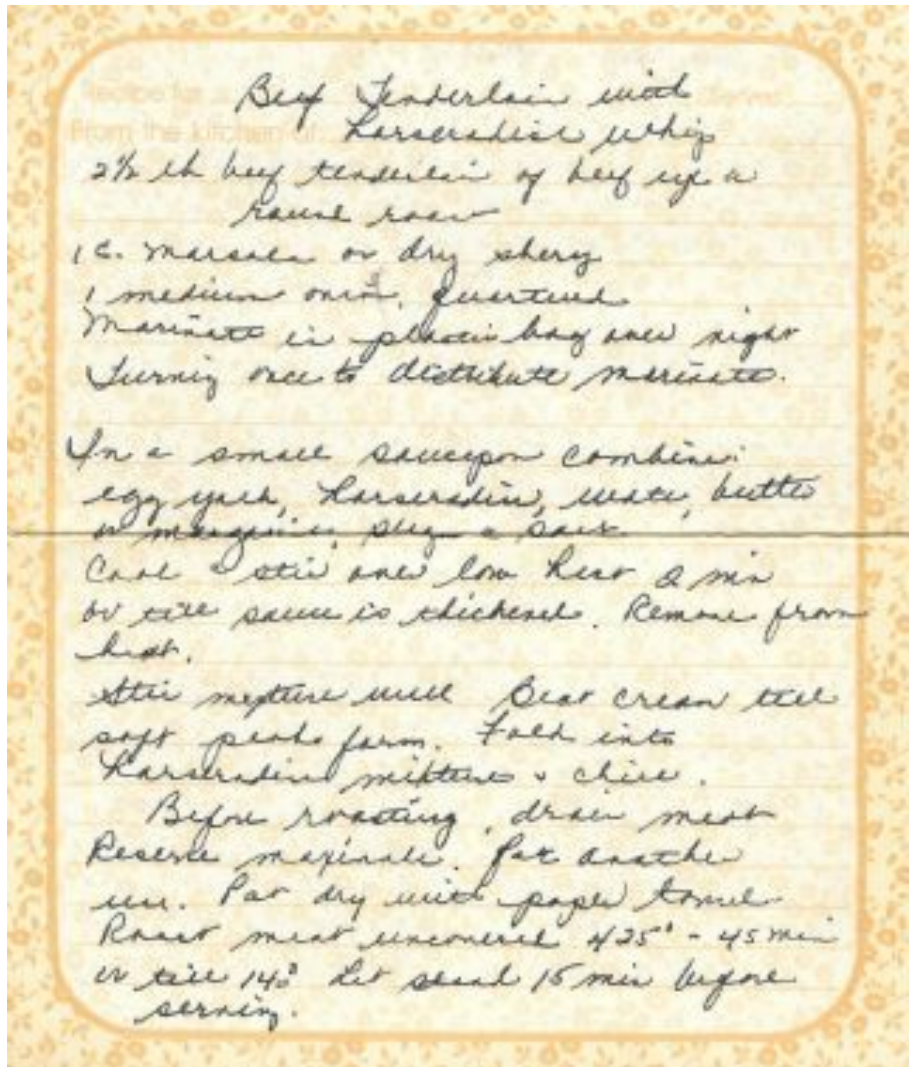 Recipe for
From the kitchen of
Beef Tenderloin with
horseradish whip
2½ lb beef tenderloin of beef eye a
round roast
1 c. Marsala or dry shery
1 medium onion, quartered
Marinate in plastic bag over night
Turning once to distribute marinate.
In a small saucepan combine:
egg yolk, horseradish, water, butter
or margarine, &
Cook & stir over low heat 2 min
or till sauce is thickened. Remove from
heat.
Stir mixture well Beat cream till
soft peaks form. Fold into
horseradish mixture & chill.
Before roasting, drain meat
Reserve marinade for another
use. Pat dry with paper towel
Roast meat uncovered 425° - 45 min
or till 140° Let stand 15 min before
serving.